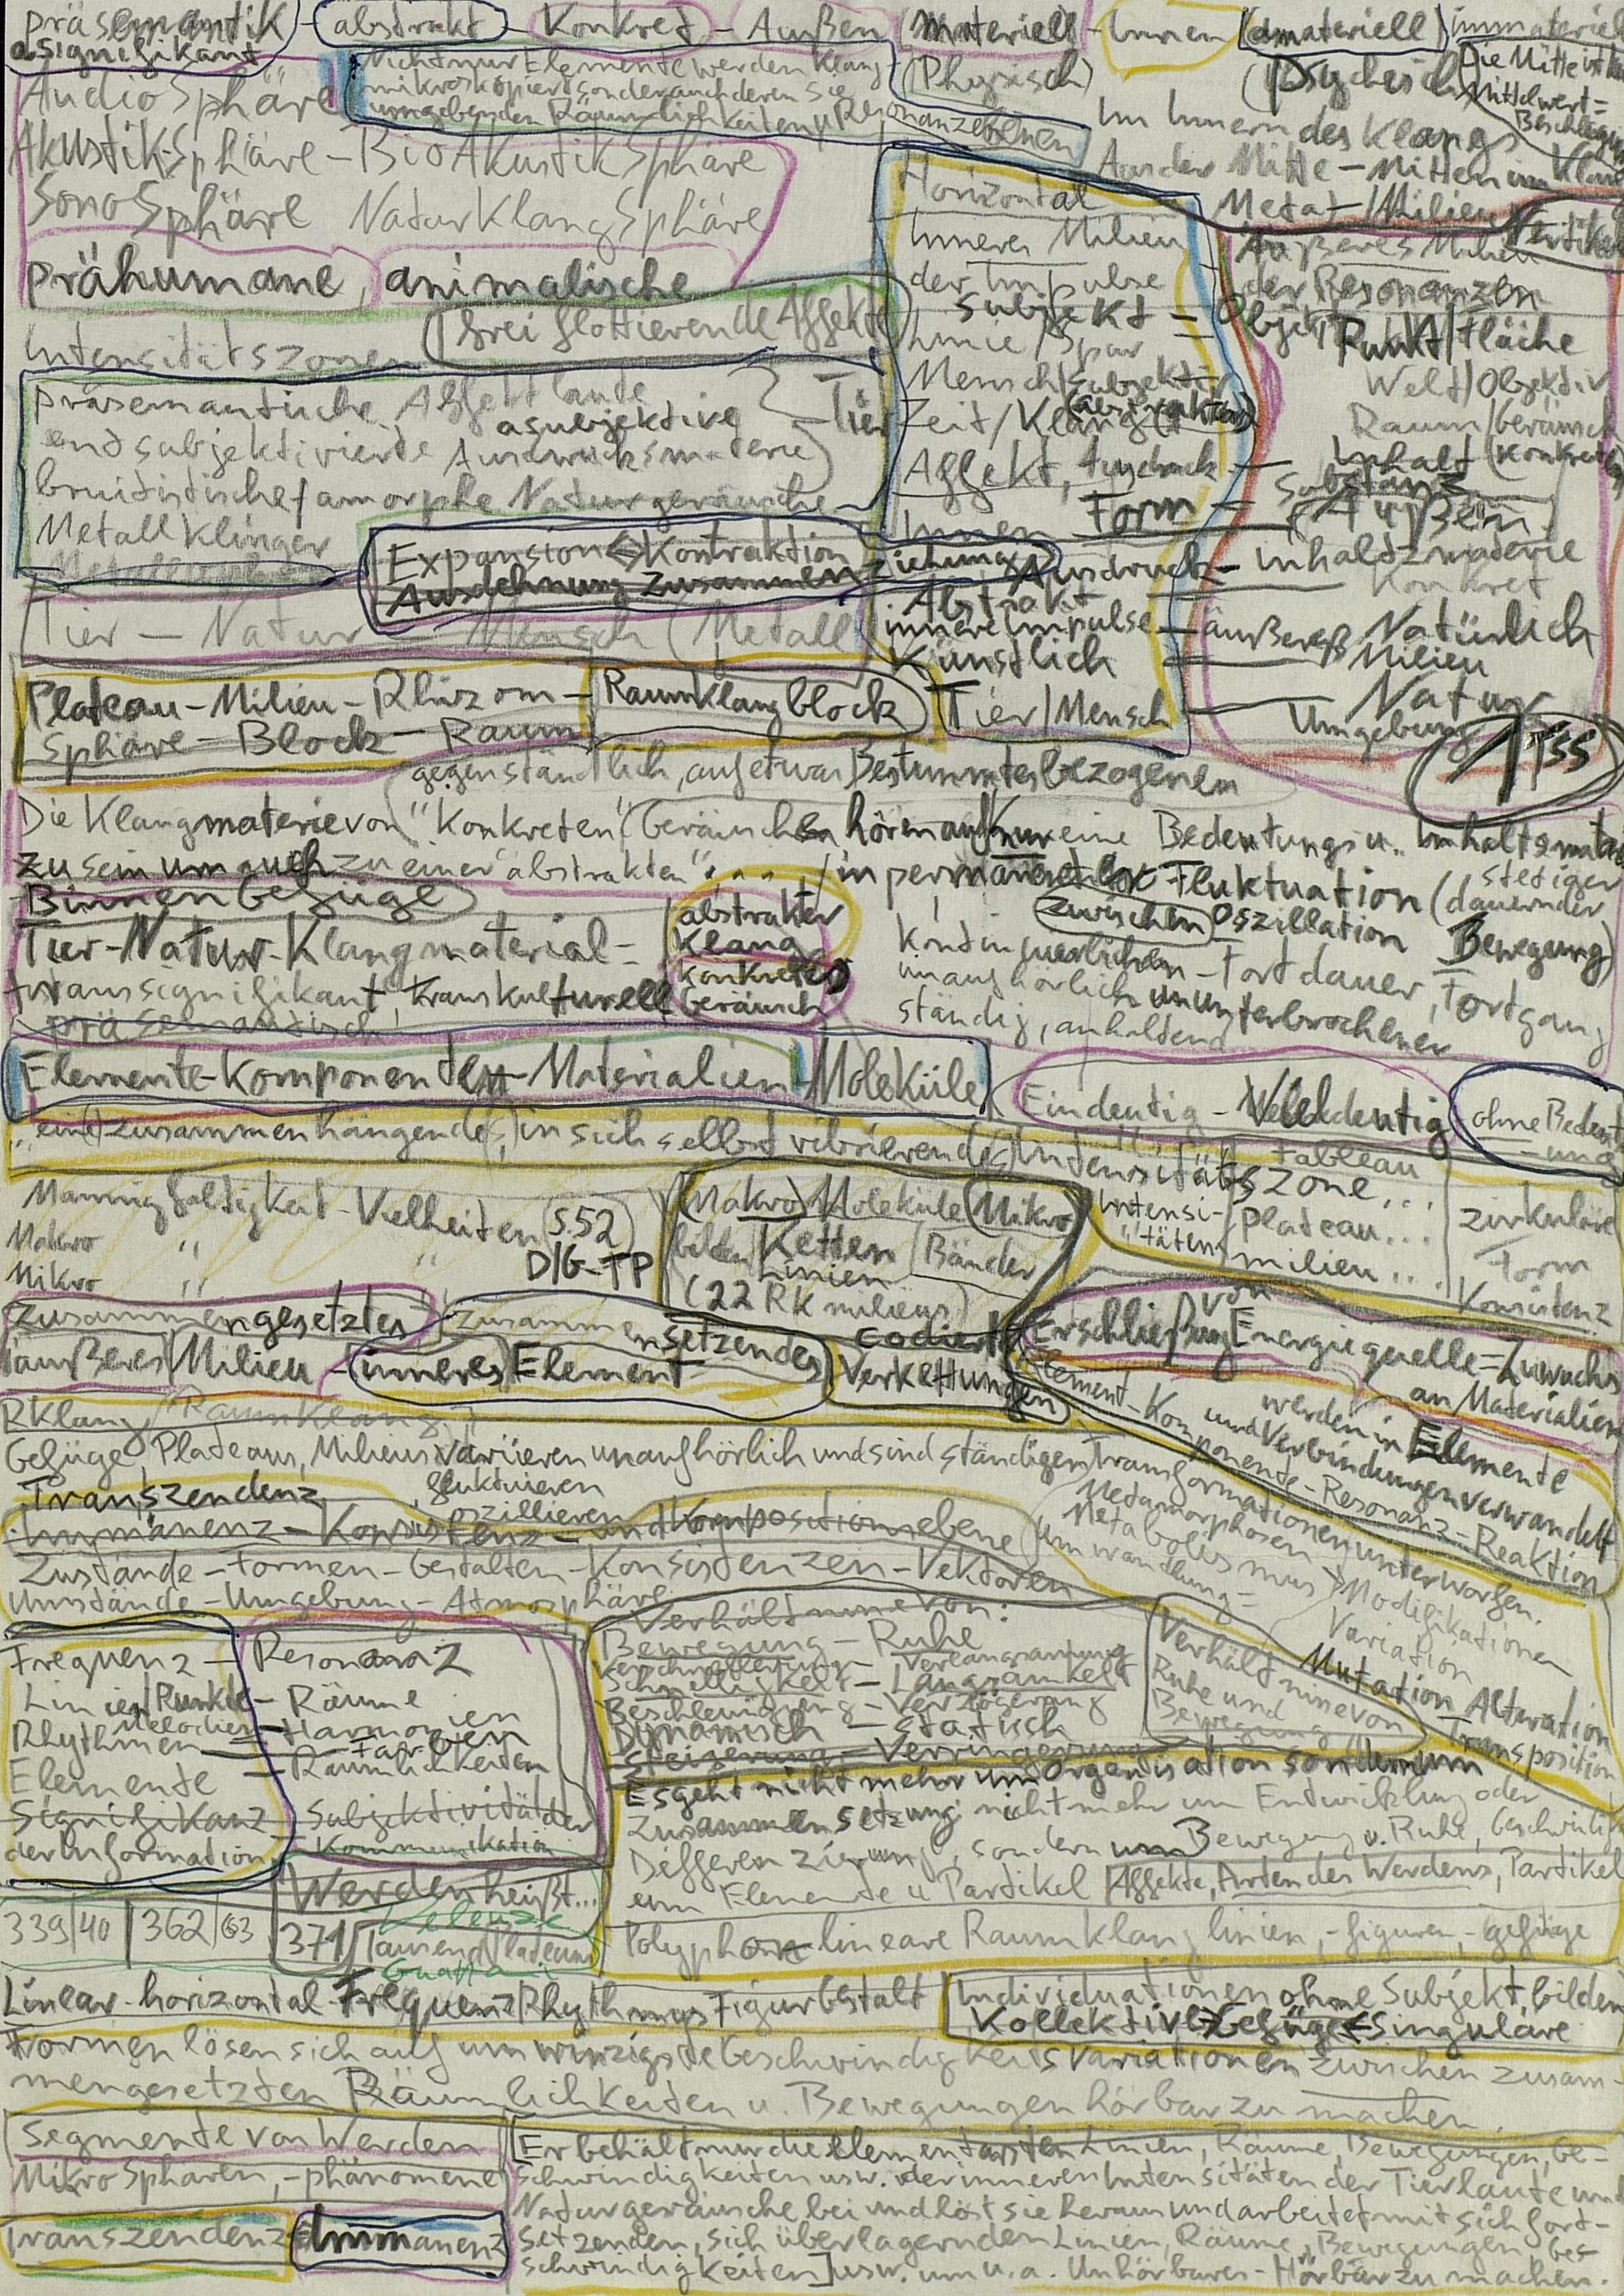 präsemantik - abstrakt - Konkret - Außen (materiell - Innen (immateriell)
asignifikant
Nicht nur Elemente werden Klang-
mikroskopiert sondern auch deren sie
umgebenden Räumlichkeiten u. Resonanzebenen
(Physisch)
(psychisch)
Die Mitte ist
Mittelwert =
AudioSphäre
Akustik-Sphäre - BioAkustikSphäre
SonoSphäre NaturKlangSphäre
prähumane, animalische
Im Innern des Klangs
Aus der Mitte - Mitten im Klang
Meta - / Milieu
Intensitätszonen
(frei flottierende Affekte)
präsemantische Affektlaute
asubjektive
entsubjektivierte Ausdrucksmaterie
Tier
bruitistische / amorphe Naturgeräusche
Metallklinger
Expansion <-> Kontraktion
Ausdehnung Zusammenziehung
Tier - Natur - Mensch (Metall
Horizontal
Inneres Milieu
der Impulse
Subjekt - Objekt
Linie / Spur
Mensch / Subjektiv
Zeit / Klang (abstrakter)
Affekt, Ausdruck - Inhalt
Innen Form - Substanz
Ausdruck - Inhaltsmaterie
Abstrakt - Konkret
innere Impulse - äußeres Milieu
Künstlich - Natürlich
Tier / Mensch - Natur
Umgebung
Vertikal
Äußeres Milieu
der Resonanzen
Punkt / Fläche
Welt / Objektiv
Raum / Geräusch
(Konkretes)
Außen
Plateau - Milieu - Rhizom -
Sphäre - Block - Raum
Raumklangblock
gegenständlich, auf etwas Bestimmtes bezogenem
Die Klangmaterie von "Konkreten" Geräuschen hören auf nur eine Bedeutungs u. Inhaltsmaterie
zu sein um auch zu einer "abstrakten" . . . / in permanenter Fluktuation (dauernder
stetiger
Bewegung)
Binnengefüge
zwischen Oszillation
Tier-Natur-Klangmaterial -
transsignifikant, transkulturell
präsemantisch
abstrakter
Klang
konkretes
Geräusch
Kontinuierlichen - Fortdauer, Fortgang
unaufhörlich ununterbrochener
ständig, anhaltend
Elemente-Komponenten-Materialien-Moleküle
Eindeutig - Vieldeutig
ohne Bedeut-
ung
"eine zusammenhängende, in sich selbst vibrierende Intensitätszone...
Tableau
Mannigfaltigkeit - Vielheiten (S.52)
Makro " "
Mikro " "
D/G-TP
(Makro) Moleküle (Mikro)
bilden Ketten / Bänder
Linien
(22 RK milieus)
Intensi-
täten
Plateau...
milieu...
zirkuläre
Form
Konsistenz
zusammengesetztes
zusammensetzendes
codierte
äußeres Milieu - inneres Element
Verkettungen
Erschließung von Energiequelle = Zuwachs
an Materialien
werden in Elemente
und Verbindungen verwandelt
Element-Komponente-Resonanz-Reaktion
RKlang / Raumklang
Gefüge, Plateaus, Milieus variieren unaufhörlich und sind ständigen Transformationen unterworfen.
fluktuieren
oszillieren
Transzendenz
Immanenz - Konsistenz - und Kompositionsebene
Metamorphosen
Metabolismus
Umwandlung =
Modifikationen
Variation
Mutation Alteration
Transposition
Zustände - Formen - Gestalten - Konsistenzen - Vektoren
Umstände - Umgebung - Atmosphäre
Frequenz - Resonanz
Linien / Punkte - Räume
Melodien - Harmonien
Rhythmen - Farben
Elemente - Räumlichkeiten
Signifikanz - Subjektivität der
der Information - Kommunikation
Verhältnisse von:
Bewegung - Ruhe
Schnelligkeit - Langsamkeit
Beschleunigung - Verzögerung
Dynamisch - statisch
Steigerung - Verringerung
Verhältnisse von
Ruhe und
Bewegung
Es geht nicht mehr um Organisation sondern um
Zusammensetzung, nicht mehr um Entwicklung oder
Differenzierung, sondern um Bewegung u. Ruhe, Geschwindigk
um Elemente u. Partikel / Affekte, Arten des Werdens, Partikel
Polyphone lineare Raumklanglinien, -figuren, -gefüge
Werden heißt...
339/40 | 362/63
371 Tausend Plateaus
Deleuze
Guattari
Linear-horizontal-Frequenz/Rhythmus Figur Gestalt
Individuationen ohne Subjekt, bilden
Kollektive Gefüge Singuläre
Formen lösen sich auf um winzigste Geschwindigkeitsvariationen zwischen zusam-
mengesetzten Räumlichkeiten u. Bewegungen hörbar zu machen.
Segmente von Werden
MikroSphären, -phänomene
Transzendenz Immanenz
[Er behält nur die elementarsten Linien, Räume, Bewegungen, Ge-
schwindigkeiten usw. der inneren Intensitäten der Tierlaute und
Naturgeräusche bei und löst sie heraus und arbeitet mit sich fort-
setzenden, sich überlagernden Linien, Räume, Bewegungen, Ges-
schwindigkeiten] usw. um u.a. Unhörbares - Hörbar zu machen.